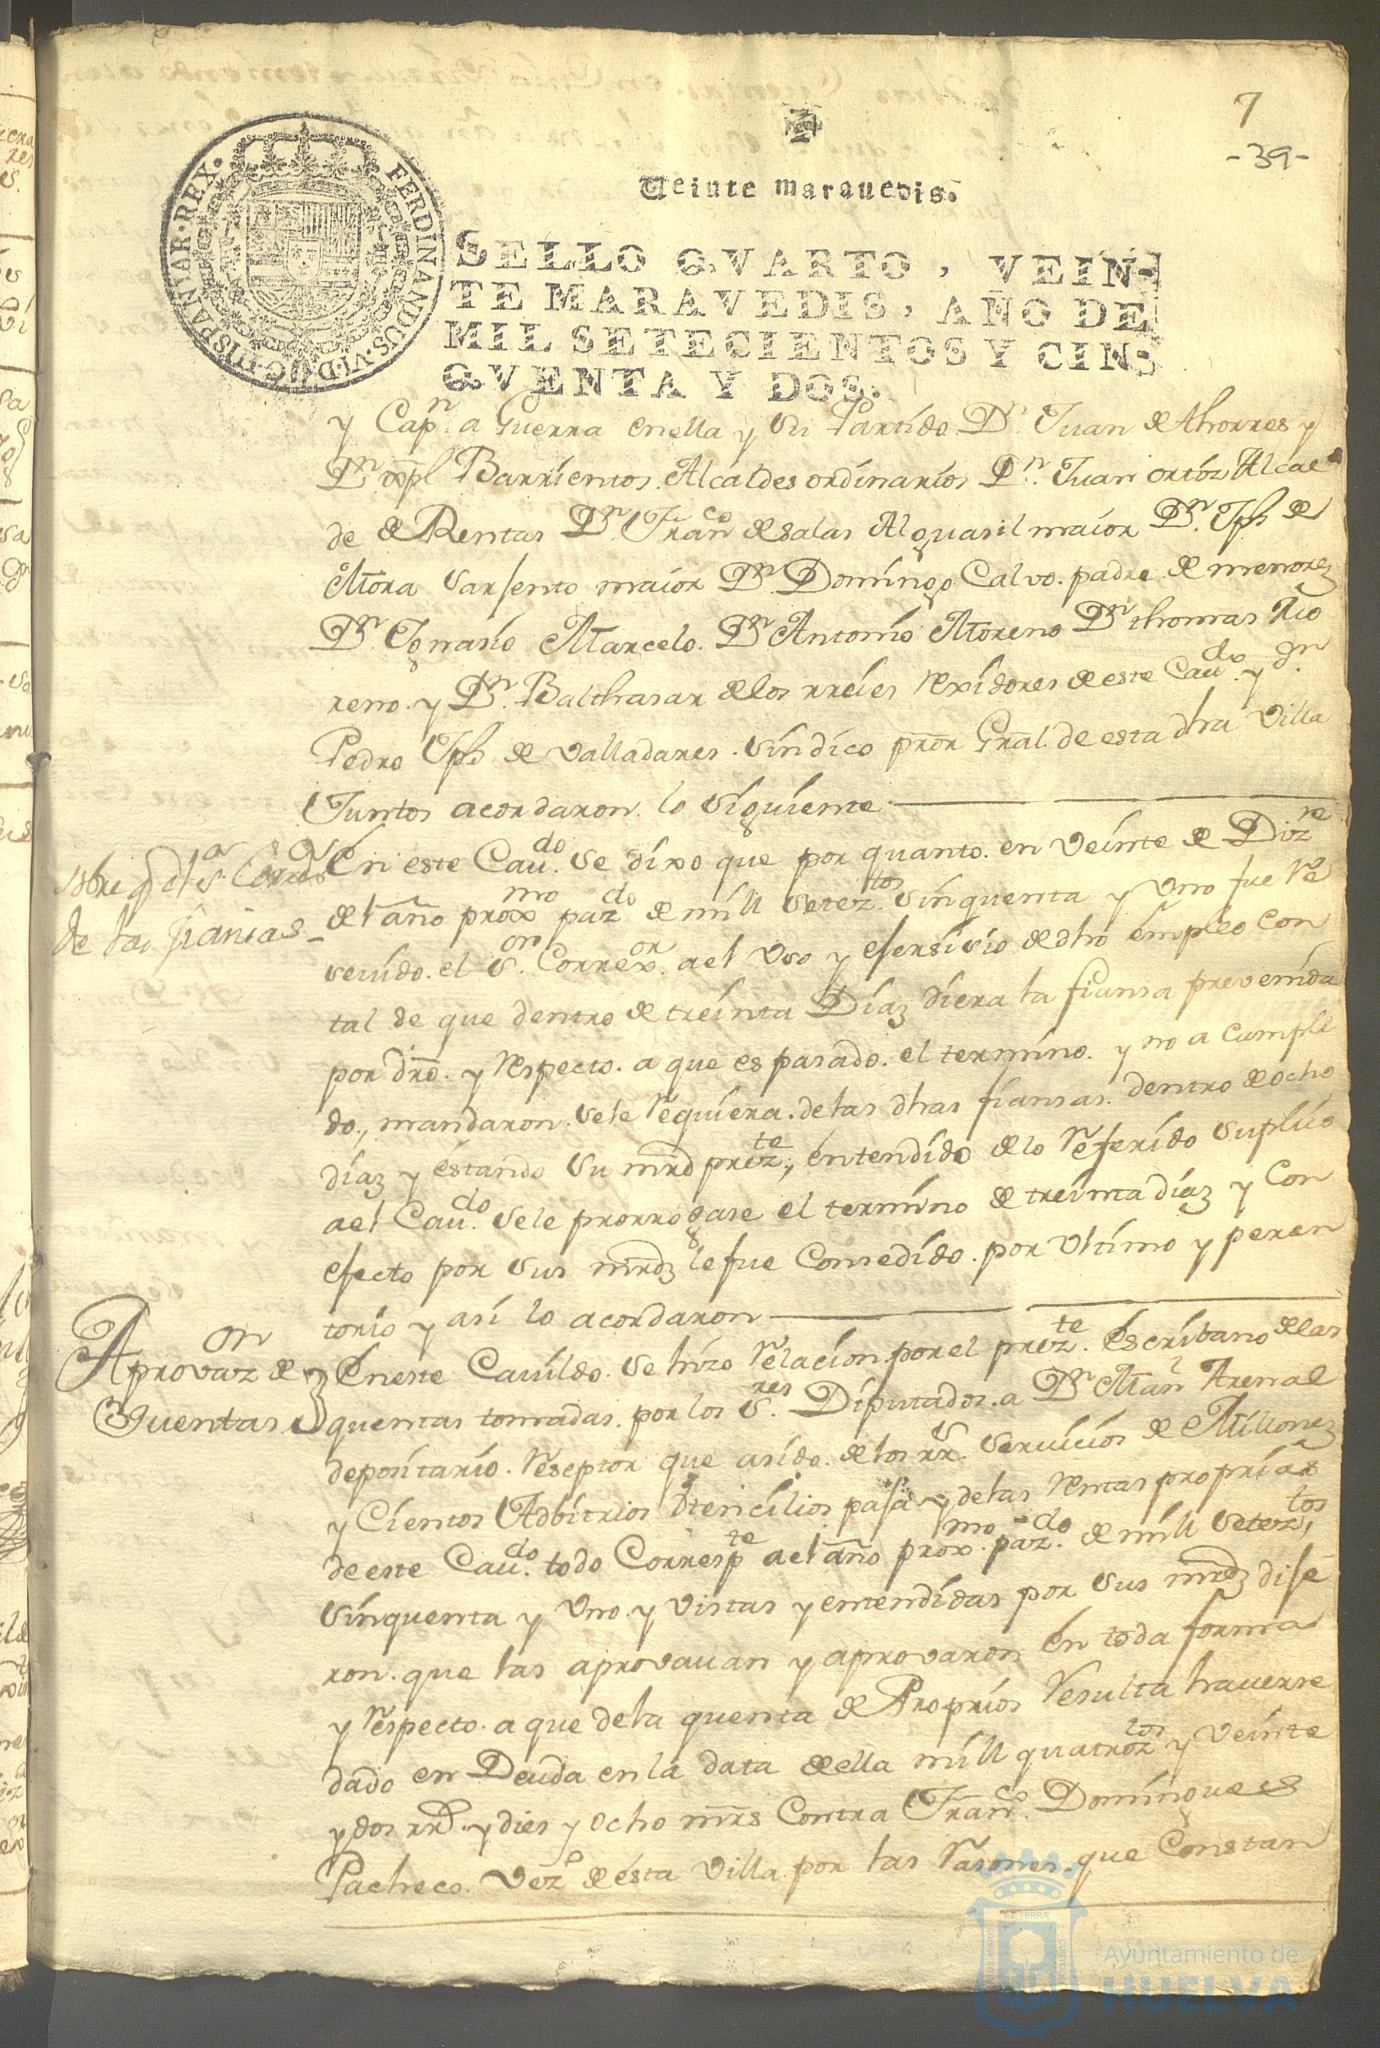 7
-39-
Veinte maravedis.
SELLO QVARTO, VEIN-
TE MARAVEDIS, AÑO DE
MIL SETECIENTOS Y CIN-
QVENTA Y DOS.
FERDINANDUS·VI·D·G·HISPANIAR·REX·
y Capn. a Guerra enella y su Partido Dn. Juan de Thorres y
Dn. xpl Barrientos Alcaldes ordinarios Dn. Juan ortiz Alcae
de de Rentas Dn. Franco de salas Alguasil maior Dn. Jph de
Mora Sarjento maior Dn. Domingo Calvo padre de menorez
Dn. Ignasio Marcelo. Dn. Antonio Moreno Dn thomas Mo
reno y Dn. Balthasar de los rreies Rexidores de este Caudo. y Dn.
Pedro Jph de Valladares sindico pror Gral de esta dha Villa
Juntos acordaron lo siguiente
sobre
de las fiansas
En este Caudo. se dixo que por quanto en veinte de Dizre
del año proxmo pazdo de mill seteztos sinquenta y Uno fue Re
sevido el Sor. Correxor. ael Uso y efersisio de dho empleo con
tal de que dentro de treinta Diaz diera la fiansa prevenida
por dro. y Respecto a que es pasado el termino y no a cumpli
do, mandaron sele Requiera de las dhas fiansas dentro de ocho
diaz y estando su mrd prezte, entendido de lo Referido suplico
ael Caudo. sele prorrogase el termino de treinta diaz y con
efecto por sus mrdz le fue Consedido por Ultimo y peren
torio y asi lo acordaron
Aprovazon de
quentas
En este Cavildo se hizo Relacion por el prezte. Escribano de las
quentas tomadas por los Sres. Diputados a Dn Manl Arenal
depositario Reseptor que asido de los rrs. servicios de Millonez
y Cientos Adbitrios Utencilios paja y de las Rentas proprias
de este Caudo. todo Correspte ael año proxmo. pazdo. de mill seteztos
sinquenta y Uno y vistas y entendidas por sus mrdz dije
ron que las aprovauan y aprovaron en toda forma
y Respecto a que de la quenta de Proprios Resulta hauerse
dado en Deuda en la data de ella mill quatroztos y veinte
y dos rrs. y dies y ocho mrs Contra Franco. Domingues
Pacheco Vezo de esta Villa por las Rasones que Constan
Ayuntamiento de
HUELVA